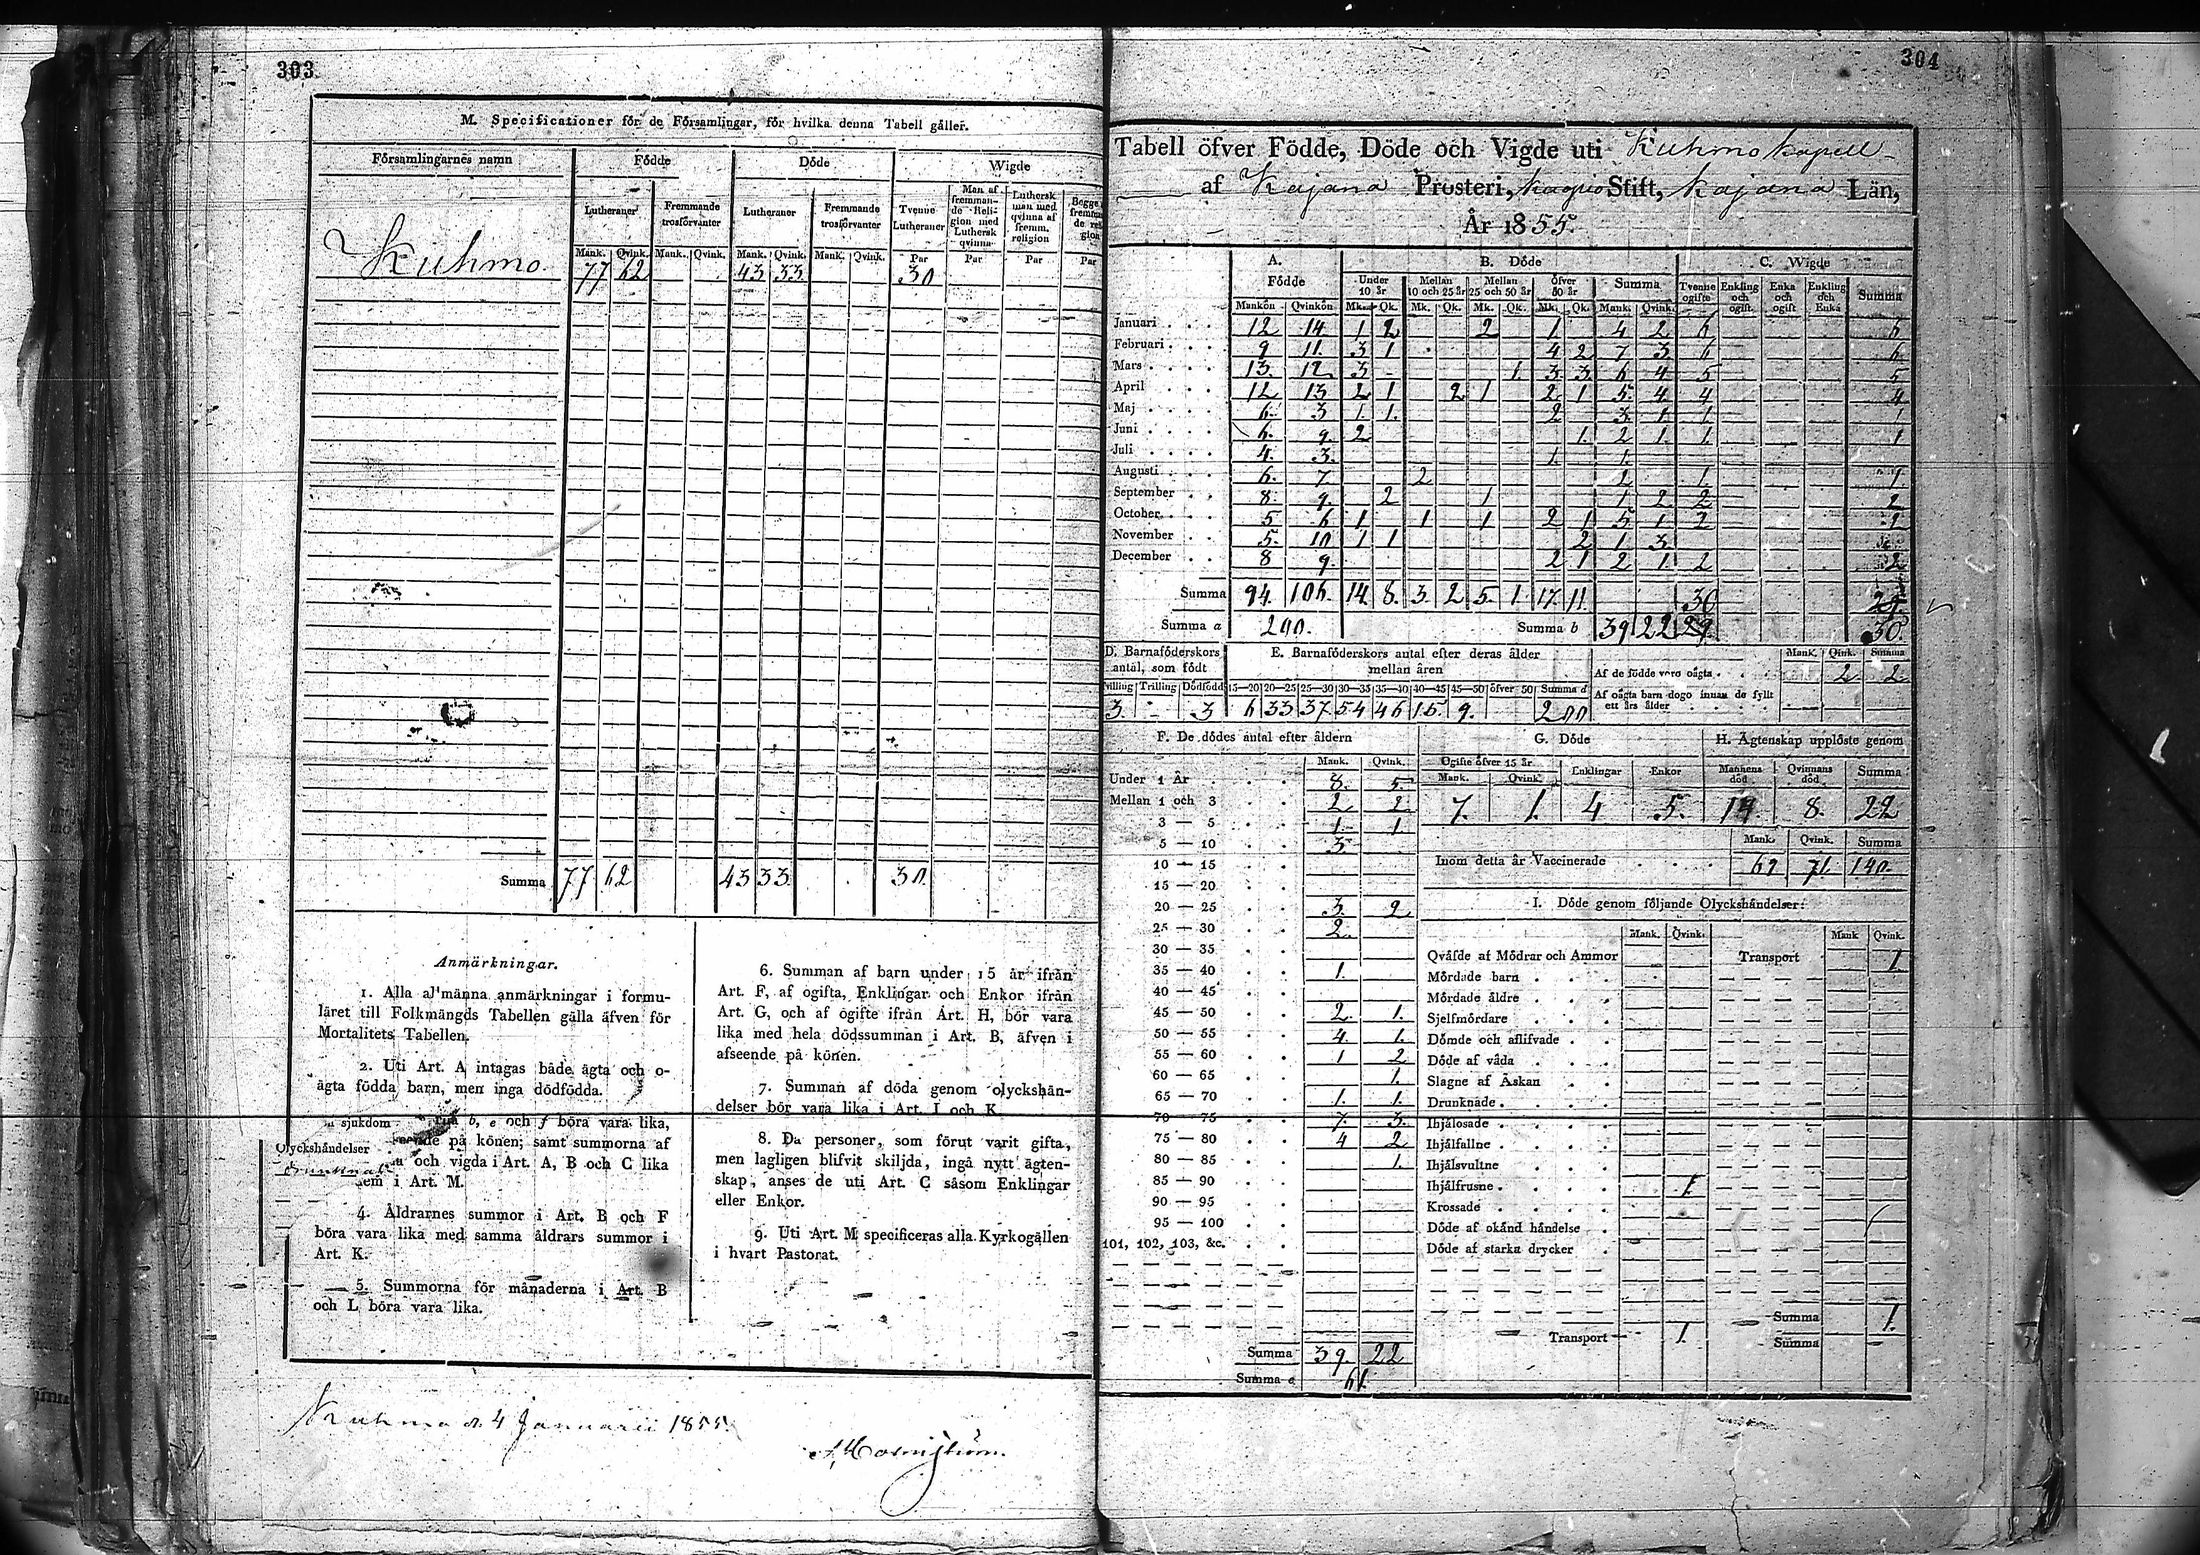 303
M. Specificationer för de Församlingar, för hvilka denna Tabell gäller.
Församlingarnes namn Födde Döde Wigde
Lutheraner Fremmande trosförvanter Lutheraner Fremmande trosförvanter Tvenne Lutheraner Man af fremmande Religion med Luthersk qvinna Luthersk man med qvinna af fremm. religion
Mank. Qvink. Mank. Qvink. Mank. Qvink. Mank. Qvink. Par Par Par Par
Kuhmo. 77 62 43 33 30
Summa 77 62 43 33 30.
Anmärkningar.
1. Alla al'männa anmärkningar i formu-
läret till Folkmängds Tabellen gälla äfven för
Mortalitets Tabellen.
2. Uti Art. A intagas både ägta och o-
ägta födda barn, men inga dödfödda.
sjukdom b, e och f böra vara lika,
Olyckshändelser på könen; samt summorna af
och vigda i Art. A, B och C lika
i Art. M.
4. Åldrarnes summor i Art. B och F
böra vara lika med samma åldrars summor i
Art. K.
5. Summorna för månaderna i Art. B
och L böra vara lika.
6. Summan af barn under 15 år ifrån
Art. F, af ogifta, Enklingar och Enkor ifrån
Art. G, och af ogifte ifrån Art. H, bör vara
lika med hela dödssumman i Art. B, äfven i
afseende på könen.
7. Summan af döda genom olyckshän-
delser bör vara lika i Art. I och K.
8. Da personer, som förut varit gifta,
men lagligen blifvit skiljda, ingå nytt ägten-
skap, anses de uti Art. C såsom Enklingar
eller Enkor.
9. Uti Art. M specificeras alla Kyrkogällen
i hvart Pastorat.
Kuhmo d. 4 Januarii 1855.
304
Tabell öfver Födde, Döde och Vigde uti Kuhmo kapell
af Kajana Prosteri, Kuopio Stift, Kajana Län,
År 1855.
A. Födde B. Döde C. Wigde
Under 10 år Mellan 10 och 25 år Mellan 25 och 50 år öfver 50 år Summa Tvenne ogifte Enkling och ogift Enka och ogift Enkling och Enka Summa
Mankön Qvinkön Mk. Qk. Mk. Qk. Mk. Qk. Mk. Qk. Mank. Qvink.
Januari 12 14 1 2 2 1 4 2 6 6
Februari 9 11. 3 1 4 2 7 3 6 6
Mars 13. 12 3 1. 3 3 6 4 5 5
April 12 13 2 1 2 1 2 1 5. 4 4 4
Maj 6. 3 1. 1. 2 3. 1. 1. 1
Juni 6. 9. 2 1. 2 1. 1. 1
Juli 4. 3. 1. 1.
Augusti 6. 7 2 2 1. 1.
September 8. 9. 2 1 1 2 2 2
October 5 6 1. 1 1 2 1 5 1 2 2
November 5. 10 1 1 2 1 3.
December 8 9. 2 1 2 1. 2 2
Summa 94. 106. 14. 8. 3. 2 5. 1. 17. 11. 30 29.
Summa a 200. Summa b 39 22 29. 30.
D. Barnaföderskors antal, som födt
E. Barnaföderskors antal efter deras ålder mellan åren
Mank. Qvink. Summa
Af de födde voro oägta 2 2
Af oägta barn dogo innan de fyllt ett års ålder
Tvilling Trilling Dödfödd 15—20 20—25 25—30 30—35 35—40 40—45 45—50 öfver 50 Summa d
3. - 3 6 33 37 54 46 15. 9. 200
F. De dödes antal efter åldern
Mank. Qvink.
Under 1 År 8. 5.
Mellan 1 och 3 2 2
3 — 5 1. 1.
5 — 10 3.
10 — 15
15 — 20
20 — 25 3. 2
25 — 30 2.
30 — 35
35 — 40 1.
40 — 45
45 — 50 2. 1.
50 — 55 4. 1.
55 — 60 1 2
60 — 65 1.
65 — 70 1. 1.
70 — 75 7. 3.
75 — 80 4 2
80 — 85 1.
85 — 90
90 — 95
95 — 100
101, 102, 103, &c.
Summa 39. 22
Summa e 61.
G. Döde H. Ägtenskap upplöste genom
Ogifte öfver 15 år Enklingar Enkor Mannens död Qvinnans död Summa
Mank. Qvink.
7. 1. 4 5. 14 8. 22
Mank. Qvink. Summa
Inom detta år Vaccinerade 69 71. 140.
I. Döde genom följande Olyckshändelser:
Mank. Qvink. Mank Qvink.
Qväfde af Mödrar och Ammor Transport 1.
Mördade barn
Mördade äldre
Sjelfmördare
Dömde och aflifvade
Döde af våda
Slagne af Åskan
Drunknade
Ihjälosade
Ihjälfallne
Ihjälsvultne
Ihjälfrusne 1.
Krossade
Döde af okänd händelse
Döde af starka drycker
Summa 1.
Transport 1. Summa